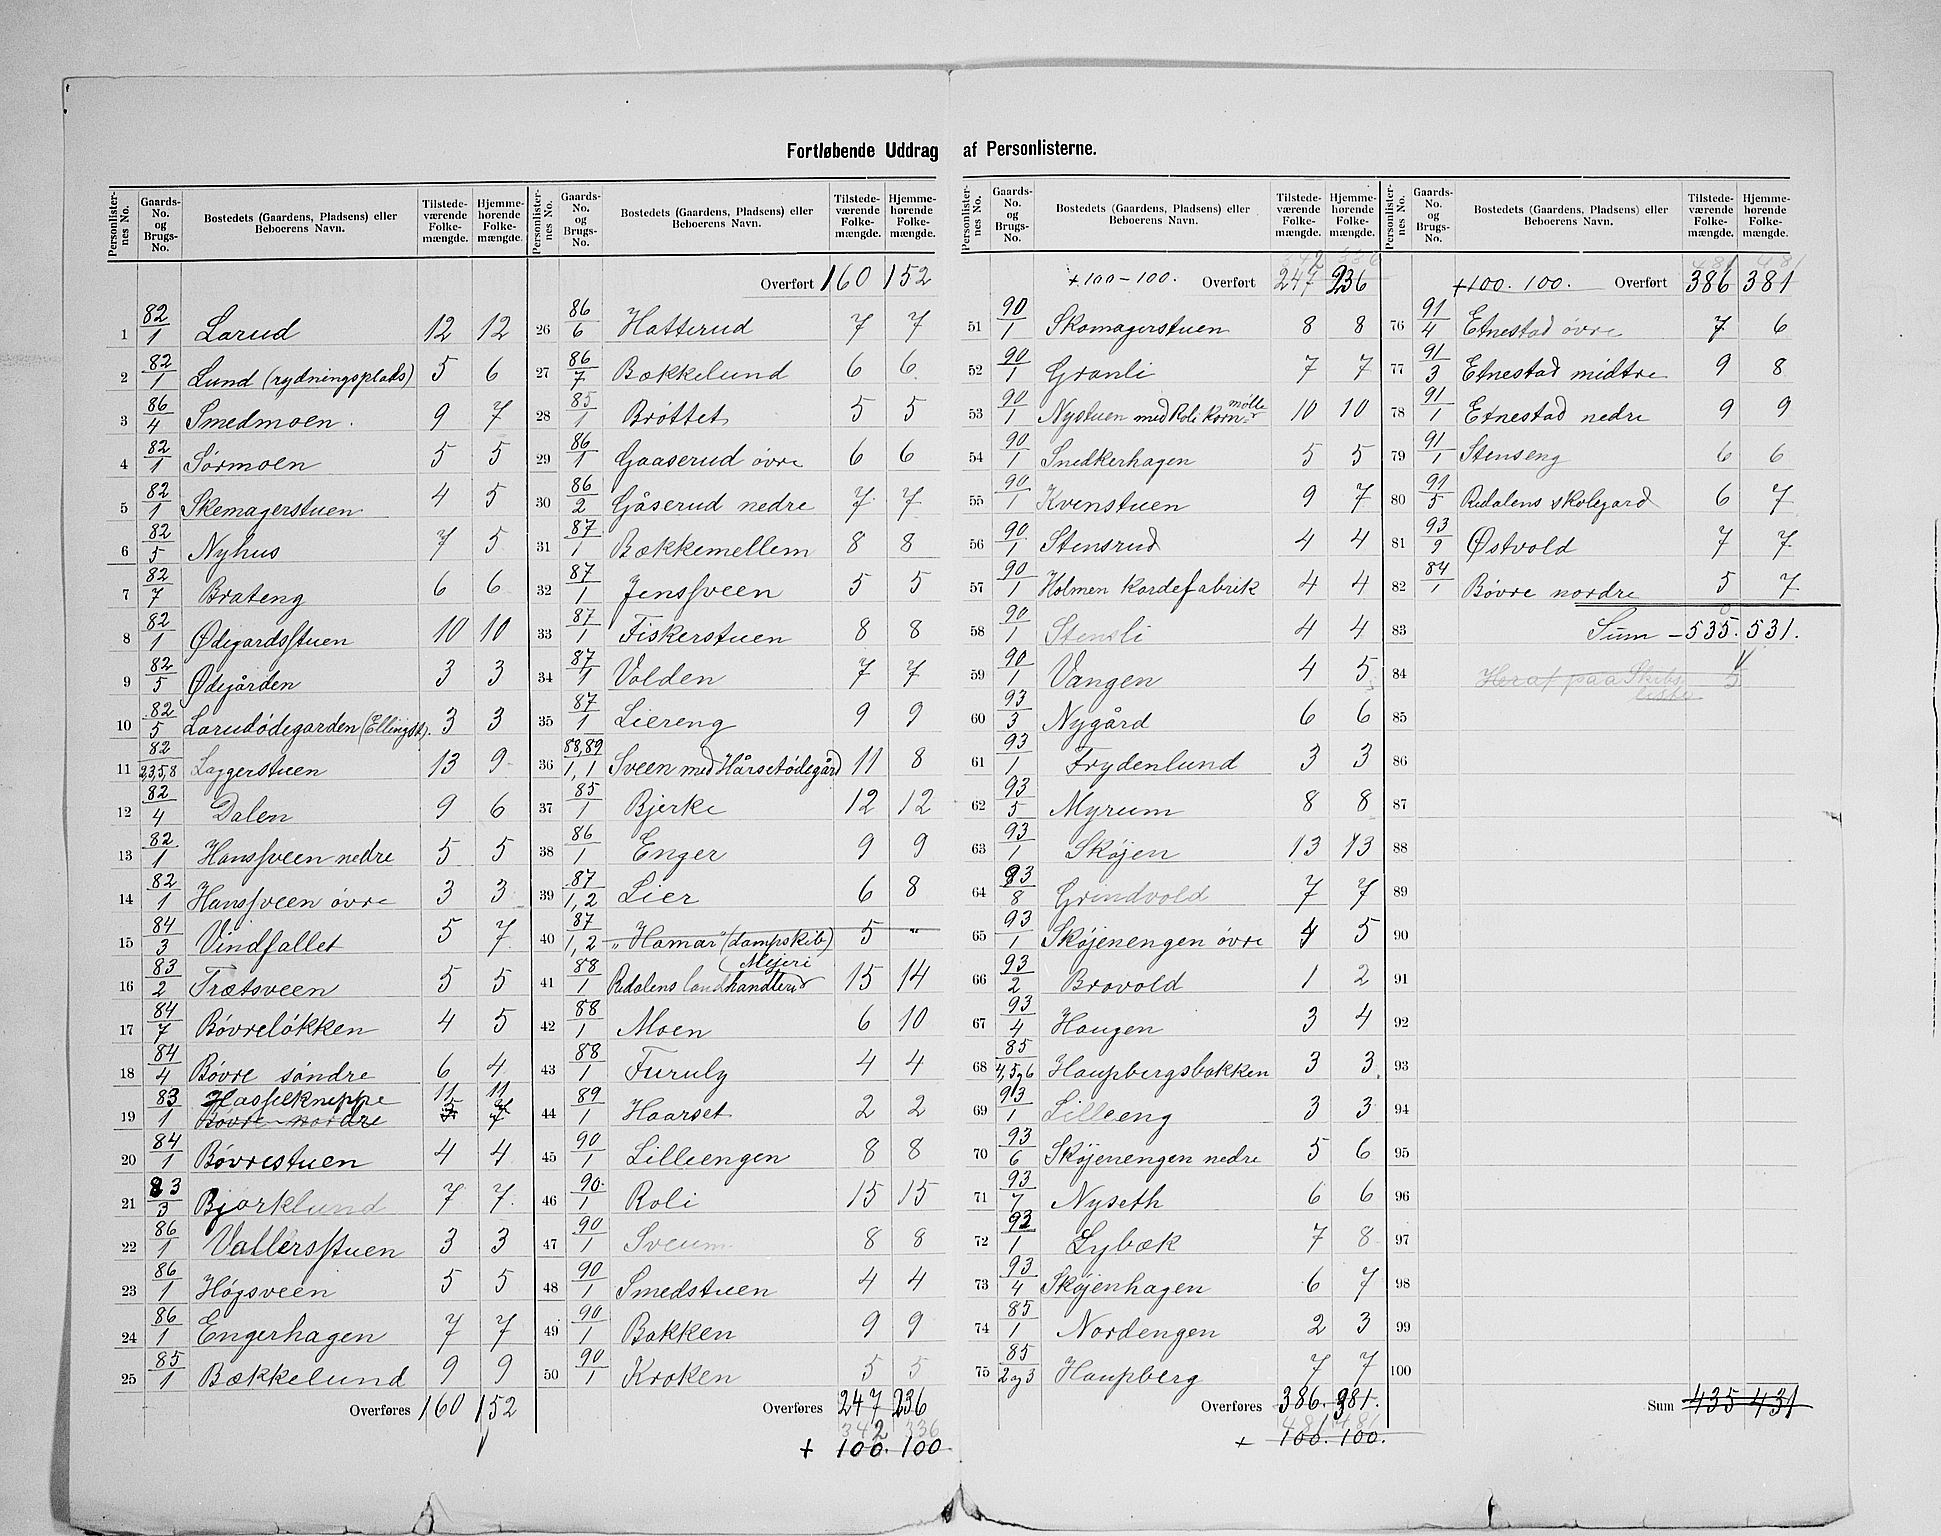 Fortløbende Uddrag af Personlisterne.
Personlisternes No. Gaards-No. og Brugs-No. Bostedets (Gaardens, Pladsens) eller Beboerens Navn. Tilstedeværende Folkemængde. Hjemmehørende Folkemængde.
1 82/1 Larud 12 12
2 82/1 Lund (rydningsplads) 5 6
3 86/4 Smedmoen. 9 7
4 82/1 Sørmoen 5 5
5 82/1 Skemagerstuen 4 5
6 82/5 Nyhus 7 5
7 82/7 Brateng 6 6
8 82/1 Ødegardsstuen 10 10
9 82/5 Ødegården 3 3
10 82/5 Larudødegarden (Ellingst). 3 3
11 82/2,3,5,8 Laggerstuen 13 9
12 82/4 Dalen 9 6
13 82/1 Hanssveen nedre 5 5
14 82/1 Hanssveen øvre 3 3
15 84/3 Vindfallet 5 7
16 83/2 Trætsveen 5 5
17 84/7 Bøvreløkken 4 5
18 84/4 Bøvre søndre 6 4
19 83/1 Hasselknippe 11 11
Bøvre nordre 5 7
20 84/1 Bøvrestuen 4 4
21 83/3 Bjørklund 7 7
22 86/1 Vallersstuen 3 3
23 86/1 Høgsveen 5 5
24 86/1 Engerhagen 7 7
25 85/1 Bækkelund 9 9
Overføres 160 152
Personlisternes No. Gaards-No. og Brugs-No. Bostedets (Gaardens, Pladsens) eller Beboerens Navn. Tilstedeværende Folkemængde. Hjemmehørende Folkemængde.
Overført 160 152
26 86/6 Hatterud 7 7
27 86/7 Bækkelund 6 6
28 85/1 Brøttet 5 5
29 86/1 Gaaserud øvre 6 6
30 86/2 Gåserud nedre 7 7
31 87/1 Bækkemellem 8 8
32 87/1 Jenssveen 5 5
33 87/1 Fiskerstuen 8 8
34 87/1 Volden 7 7
35 87/1 Liereng 9 9
36 88,89/1,1 Sveen med Hårsetødegård 11 8
37 85/1 Bjerke 12 12
38 86/1 Enger 9 9
39 87/1,2 Lier 6 8
40 87/1,2 "Hamar" (dampskib) 5 "
41 88/1 Redalens landhandleri Mejeri 15 14
42 88/1 Moen 6 10
43 88/1 Furuly 4 4
44 89/1 Haarset 2 2
45 90/1 Lilleengen 8 8
46 90/1 Roli 15 15
47 90/1 Sveum 8 8
48 90/1 Smedstuen 4 4
49 90/1 Bakken 9 9
50 90/1 Kroken 5 5
Overføres 247 236
342 336
+ 100. 100
Personlisternes No. Gaards-No. og Brugs-No. Bostedets (Gaardens, Pladsens) eller Beboerens Navn. Tilstedeværende Folkemængde. Hjemmehørende Folkemængde.
342 336
+100-100. Overført 247 236
51 90/1 Skomagerstuen 8 8
52 90/1 Granli 7 7
53 90/1 Nystuen med Roli Kornmølle 10 10
54 90/1 Snedkerhagen 5 5
55 90/1 Kvenstuen 9 7
56 90/1 Stensrud 4 4
57 90/1 Holmen Kardefabrik 4 4
58 90/1 Stensli 4 4
59 90/1 Vangen 4 5
60 93/3 Nygård 6 6
61 93/1 Frydenlund 3 3
62 93/5 Myrum 8 8
63 93/1 Skøjen 13 13
64 93/8 Grindvold 7 7
65 93/1 Skøjenengen øvre 4 5
66 93/2 Brovold 1 2
67 93/4 Haugen 3 4
68 85/4,5 og 6 Haupbergsbakken 3 3
69 93/1 Lilleeng 3 3
70 93/6 Skøjenengen nedre 5 6
71 93/7 Nyseth 6 6
72 93/1 Lybæk 7 8
73 93/4 Skøjenhagen 6 7
74 85/1 Nordengen 2 3
75 85/2 og 3 Haupberg 7 7
Overføres 386. 381.
481 486
+ 100. 100.
Personlisternes No. Gaards-No. og Brugs-No. Bostedets (Gaardens, Pladsens) eller Beboerens Navn. Tilstedeværende Folkemængde. Hjemmehørende Folkemængde.
+100. 100. Overført 386 381
76 91/4 Etnestad øvre 7 6
77 91/3 Etnestad midtre 9 8
78 91/1 Etnestad nedre 9 9
79 91/1 Stenseng 6 6
80 91/5 Redalens skolegard 6 7
81 93/9 Østvold 7 7
82 84/1 Bøvre nordre 5 7
83 Sum - 535. 531.
84 Heraf paa Skibsliste 5
85
86
87
88
89
90
91
92
93
94
95
96
97
98
99
100
Sum 435 431